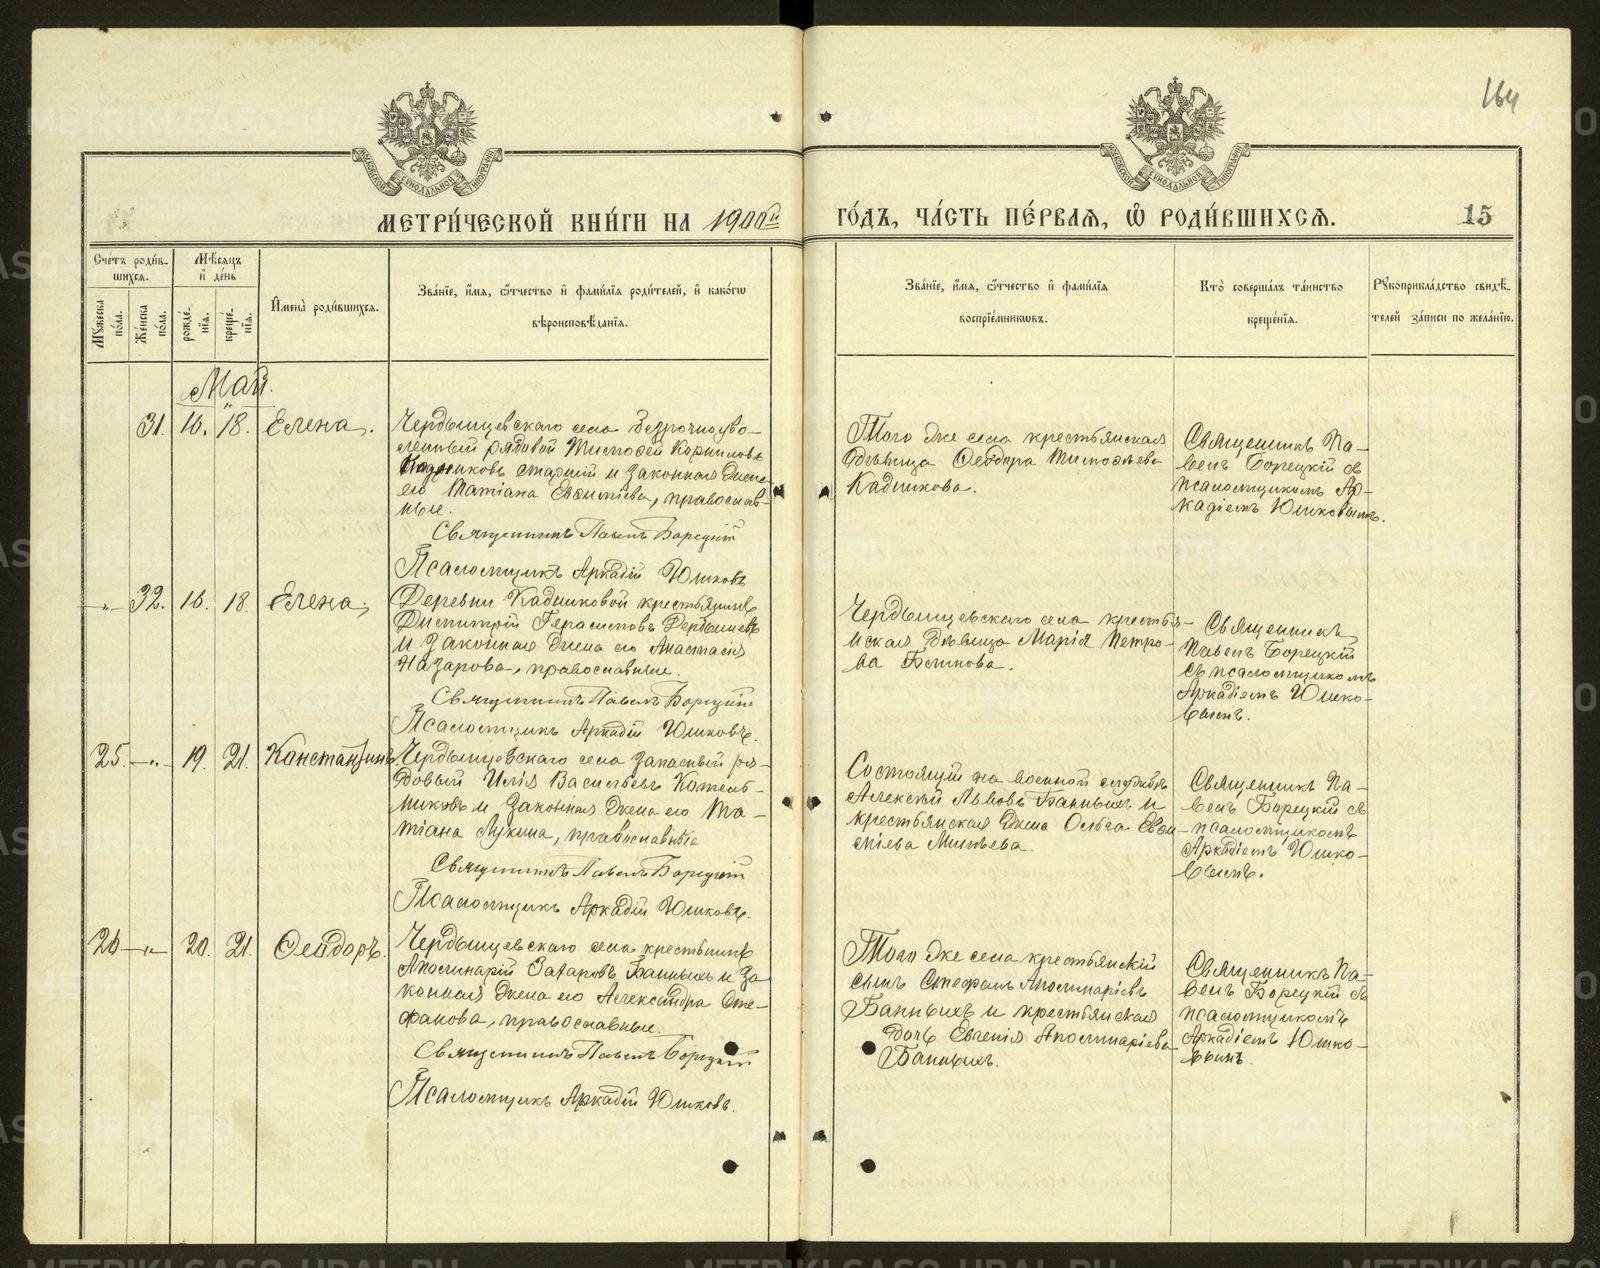 164
МЕТРИ́ЧЕСКОЙ КНИ́ГИ НА 1900й ГО́ДЪ, ЧА́СТЬ ПЕ́РВАЯ, Ѡ РОДИ́ВШИХСЯ.
15
Сче́тъ роди́в-
шихся.
Мꙋжеска по́ла.
Же́нска по́ла.
Мѣ́сяцъ
и де́нь
рожде́-
нїя.
креще́-
нїя.
Имена̀ роди́вшихся.
Зва́нїе, и́мя, ѻ́тчество и фами́лїя роди́телей, и како́гѡ
вѣроисповѣ́данїя.
Зва́нїе, и́мя, ѻ́тчество и фами́лїя
воспрїе́мникѡвъ.
Кто̀ соверша́лъ та́инство
креще́нїя.
Рꙋкоприкла́дство свидѣ́-
телей за́писи по жела́нїю.
Май.
31. 16. 18. Елена.
Чердынцевскаго села безсрочноуво-
ленный рядовой Тимофей Корниловъ
Кадниковъ старшій и законная жена
его Татіана Евсигніева, православ-
ные.
Священникъ Павелъ Борецкій
Псаломщикъ Аркадій Юшковъ
Того же села крестьянская
дѣвица Ѳеодора Тимоѳеева
Кадникова.
Священникъ Па-
велъ Борецкій съ
псаломщикомъ Ар-
кадіемъ Юшковымъ.
-"- 32. 16. 18. Елена,
Деревни Кадниковой крестьянинъ
Димитрій Герасимовъ Дербышевъ
и законная жена его Анастасія
Назарова, православные.
Священникъ Павелъ Борецкій
Псаломщикъ Аркадій Юшковъ.
Чердынцевскаго села крестья-
нская дѣвица Марія Петро-
ва
Священникъ
Павелъ Борецкій
съ псаломщикомъ
Аркадіемъ Юшко-
вымъ.
25. -"- 19. 21. Константинъ.
Чердынцевскаго села запасный ря-
довый Илія Васильевъ Котель-
никовъ и законная жена его Та-
тіана Лукина, православные
Священникъ Павелъ Борецкій
Псаломщикъ Аркадій Юшковъ.
Состоящій на военной службѣ
Алексѣй Львовъ Банныхъ и
крестьянская жена Ольга Евси-
гніева Минѣева.
Священникъ Па-
велъ Борецкій съ
псаломщикомъ
Аркадіемъ Юшко-
вымъ.
26 -"- 20. 21. Ѳеодоръ.
Чердынцевскаго села крестьянинъ
Аполинарій Захаровъ Банныхъ и за
конная жена его Александра Сте-
фанова, православные.
Священникъ Павелъ Борецкій
Псаломщикъ Аркадій Юшковъ.
Того же села крестьянскій
сынъ Стефанъ Аполинаріевъ
Банныхъ и крестьянская
дочь Евгенія Аполинаріева
Банныхъ.
Священникъ Па-
велъ Борецкій съ
псаломщикомъ
Аркадіемъ Юшко-
вымъ.